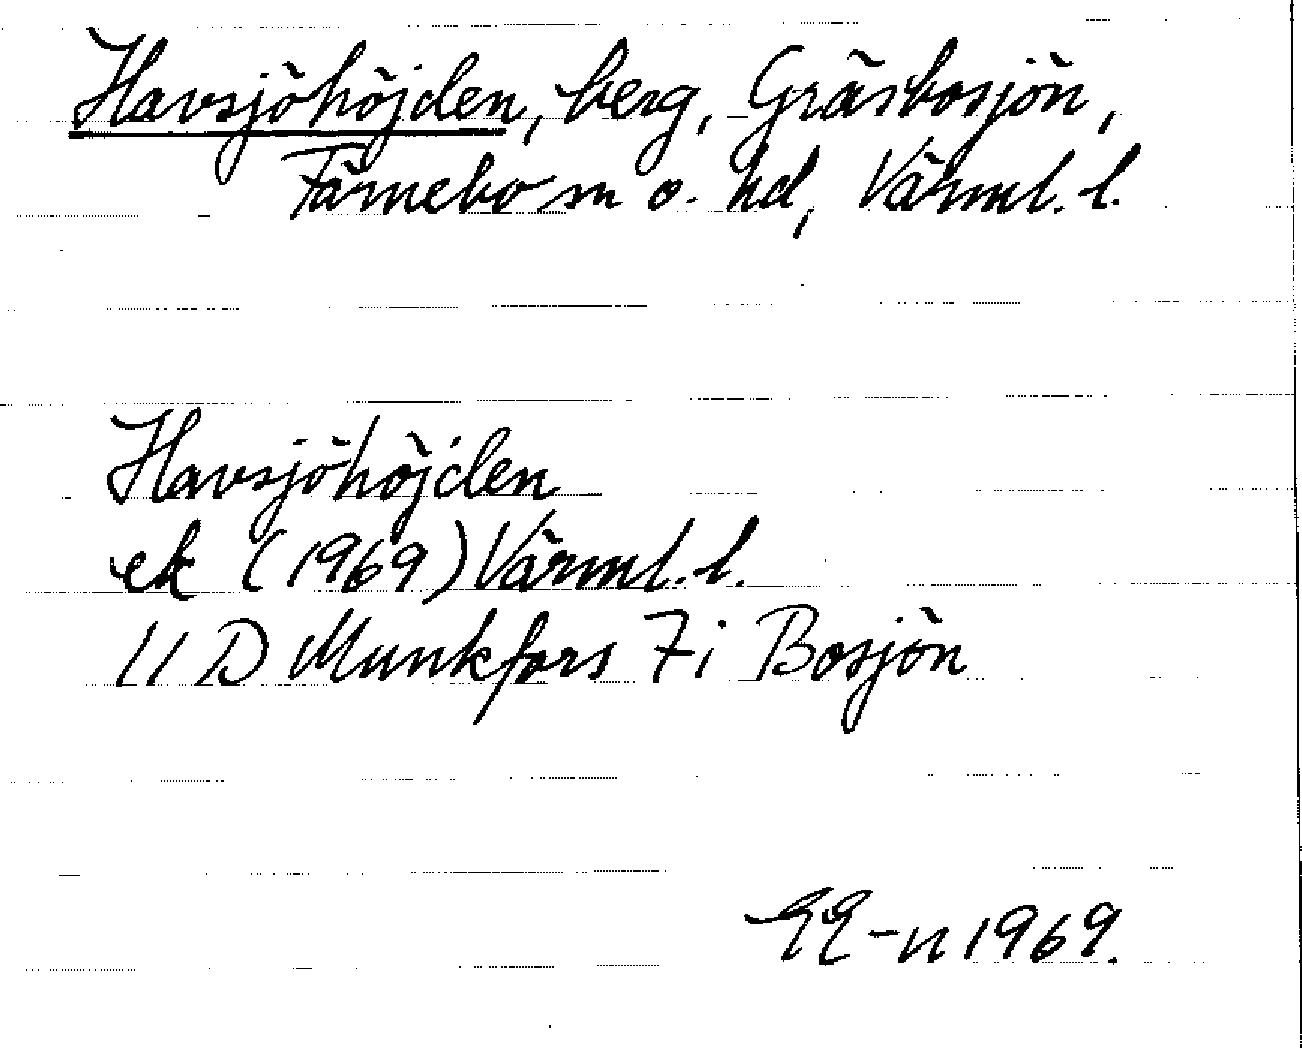 Havsjöhöjden, berg, Gräsbosjön,
Färnebo sn o. hd, Värml. l.
Havsjöhöjden
ek (1969) Värml. l.
11 D Munkfors 7 i Bosjön
EE-n 1969.